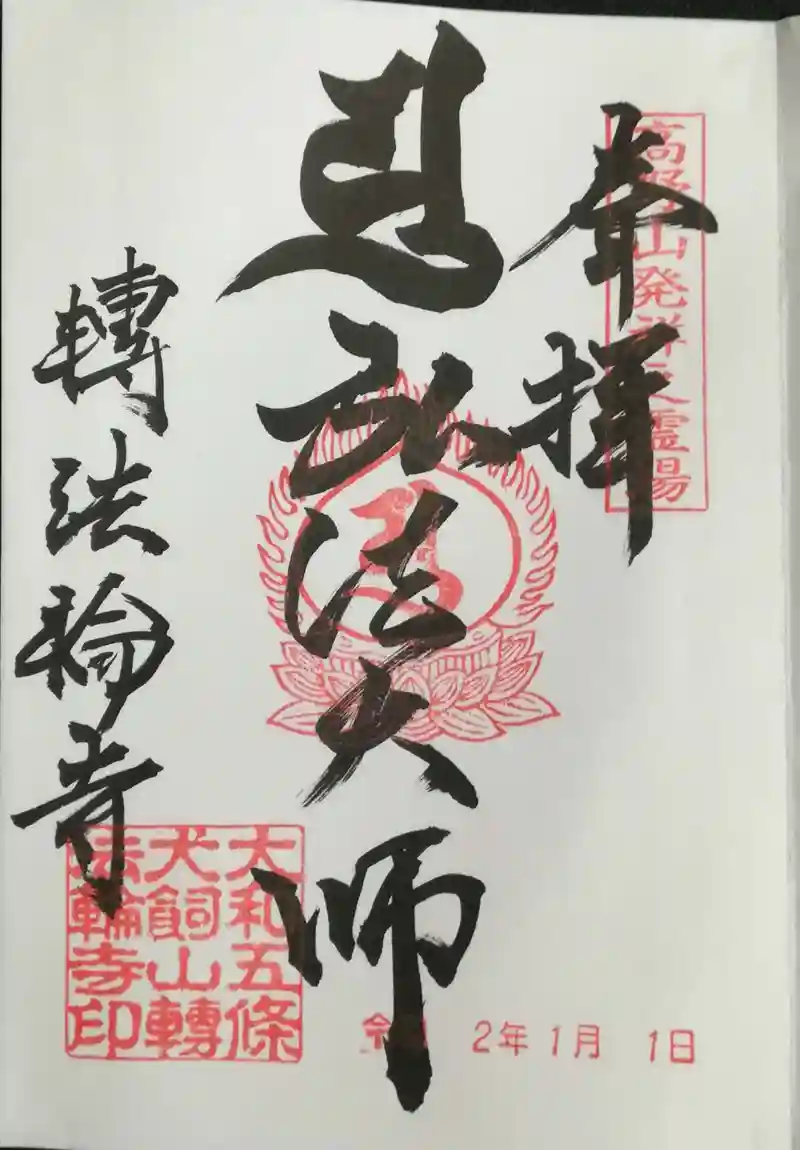 奉拝
高野山発祥之霊場
弘法大師
轉法輪寺
大和五條
犬飼山轉
法輪寺印
令和 2年 1月 1日